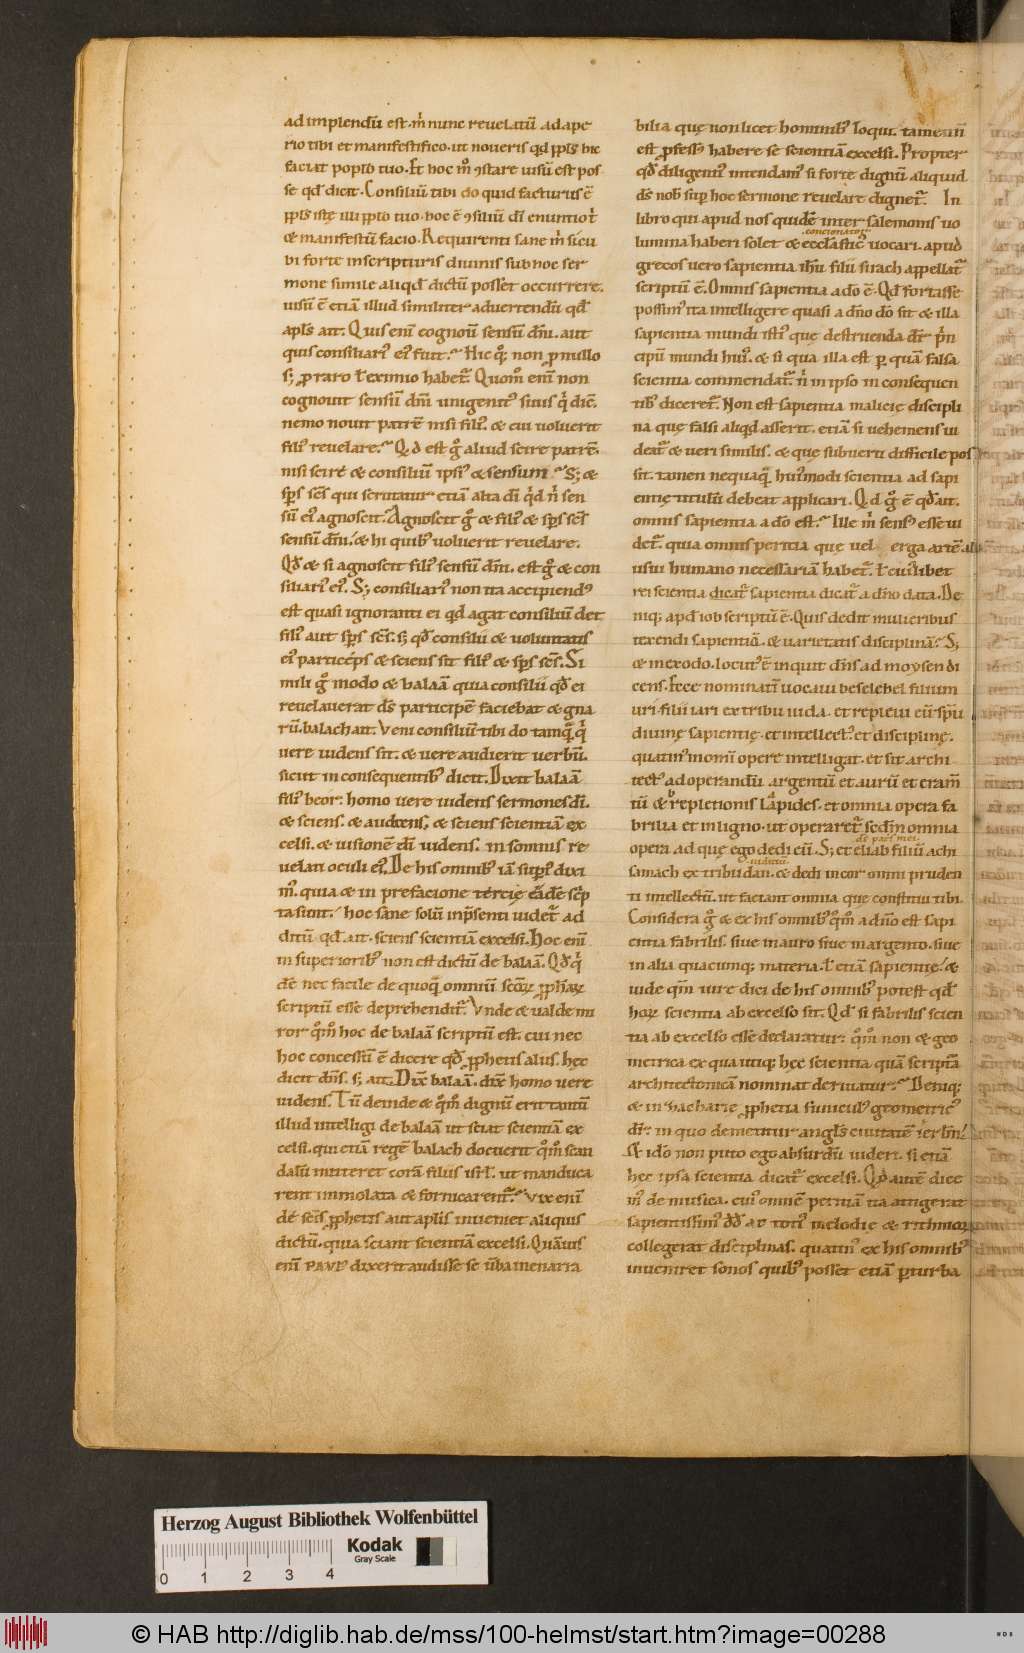 ad implendū est. m̄ nunc reuelatū ad ape
rio tibi et manifestifico. ut noueris qđ pplꝰ hic
faciat poplo tuo. Et hoc m̊ ꝯstare uisū est pos
se qđ dicit. Consiliū tibi do quid facturus ē
pplꝰ istę illi pplo tuo. hoc ē ꝯsiliū dī enuntio t̄
& manifestū facio. Requirenti sane m̄ sicu
bi forte in scripturis diuinis sub hoc ser
mone simile aliqđ dictū posset occurrere.
uisū ē etiā illud similiter aduertendū qđ
apls ait. Quis enī cognouit sensū dn̄i. aut
quis consiliariꝰ eiꝰ fuit. Hic q̊; non ꝓ nullo
s; ꝓ raro ł eximio habet᷑. Quom̊ enī non
cognouit sensū dn̄i unigenitꝰ sius q̄ dic̄.
nemo nouit patrē nisi filiꝰ. & cui uoluerit
filiꝰ reuelare. Qd est g̊ aliud scire patrē.
nisi scire & consiliū ipsiꝰ & sensum. S; &
sp̄s sc̄s qui scrutatur etiā alta dī q̄d n̄ sen
sū eiꝰ agnoscit. Agnoscit g̊ & filiꝰ & sp̄s sc̄s
sensū dn̄i. & hi quibꝰ uoluerit reuelare.
Qđ & si agnoscit filiꝰ sensū dn̄i. est g̊ & con
siliariꝰ eiꝰ. S; consiliariꝰ non ita accipiendꝰ
est quasi ignoranti ei qđ agat consiliū det
filiꝰ aut sp̄s sc̄s. s; qđ consilii & uoluntatis
eiꝰ particeps & sciens sit filiꝰ & sp̄s sc̄s. Si
mili g̊ modo & balaā quia consilii qđ ei
reuelauerat ds̄ participē faciebat & gna
rū. balach ait. Veni consiliū tibi do tamq̄ q̄
uere uidens sit. & uere audierit uerbū.
sicut in consequentibꝰ dicit. Dixit balaā
filiꝰ beor. homo uere uidens sermones dī.
& sciens. & audiens, & sciens scientiā ex
celsi. & uisionē dī uidens. in somnis re
uelati oculi eiꝰ. De his omnibꝰ iā supꝰ dixi
mꝰ. quia & in prefacione tercię eadē sc̄p
ta sunt. hoc sane solū inp̄senti uidet᷑ ad
ditū qđ ait. sciens scientiā excelsi. Hoc enī
in superioribꝰ non est dictū de balaā. Qđ q̄
dē nec facile de quoq̄ omniū sc̄oꝝ ꝓphaꝝ
scriptū esse deprehendit᷑. Vnde & ualde mi
ror q̊m̊ hoc de balaā scriptū est. cui nec
hoc concessū ē dicere qđ ꝓphetis aliis. hęc
dicit dn̄s. s; ait. Dix̄ balaā. dix̄ homo uere
uidens. Tū deinde & q̊m̊ dignū erit tantū
illud intelligi de balaā ut sciat scientiā ex
celsi. qui etiā regē balach docuerit q̊m̊ scan
dalū mitteret corā filiis isrł. ut manduca
rent immolata & fornicarent᷑. Vix enī
de sc̄is ꝓphetis aut aplis inueniet aliquis
dictū. quia sciant scientiā excelsi. Quāuis
enī PAVLꝰ dixerit audisse se uba inenarra
bilia quę non licet hominibꝰ loqui. tamen n̄
est ꝓfessꝰ habere se scientiā excelsi. Propter
qđ diligentiꝰ intendamꝰ si forte dignū aliquid
ds̄ nob̄ sup hoc sermone reuelare dignet᷑. In
libro qui apud nos quidē inter salemonis uo
concionator
lumina haberi solet & ecclasticꝰ uocari. apud
grecos uero sapientia ihū filii sirach appellat᷑
scriptū ē. Omnis sapientia a do ē. Qđ fortasse
possimꝰ ita intelligere quasi a dn̄o do sit & illa
sapientia mundi istiꝰ que destruenda dr̄ p̄n
cipū mundi huiꝰ. & si qua illa est ꝑ quā falsa
scientia commendat᷑. n̄ in ipso in consequen
tibꝰ diceret᷑. Non est sapientia malicię discipli
na quę falsi aliqđ asserit. etiā si uehemens ui
deat᷑ & ueri similis. & quę subuerti difficile pos
sit. tamen nequaquā huiꝰmodi scientia ad sapi
entię titulū debeat applicari. Qd g̊ ē qđ ait.
omnis sapientia a do est. Ille m̄ sensꝰ esse ui
det᷑. quia omnis peritia que uel erga artē ali
usui humano necessariā habet᷑. ł cuiꝰlibet
rei scientia dicat᷑ sapientia dicat᷑ a dn̄o data. De
niq; apđ iob scriptū ē. Quis dedit mulieribus
texendi sapientiā. & uarietatis disciplinā. S;
& in exodo. locutꝰ ē inquit dn̄s ad moysen di
cens. Ecce nominatī uocaui beselehel filium
uri filii iari ex tribu iuda. et repleui eū sp̄u
diuinę sapientię. et intellectꝰ. et disciplinę.
quatinꝰ in omī opere intelligat. et sit archi
tectꝰ ad operandū argentū et aurū et eram̄
tū & repletionis lapides. et omnia opera fa
brilia et in ligno. ut operaret᷑ sc̄dm omnia
de pars mei
opera ad que ego dedi eū. S; et eliab filiū achi
samach ex tribu dan. & dedi in cor omni pruden
ti intellectū. ut faciant omnia quę constitui tibi.
Considera g̊ & ex his omnibꝰ q̊m̊ a dn̄o est sapi
entia fabrilis. siue in auro siue in argento. siue
in alia quacunq; materia. ł etiā sapientię. &
uide q̄m iure dici de his omnibꝰ potest qđ
haꝝ scientia ab excelso sit. Qđ si fabrilis scien
tia ab excelso esse declaratur. q̊m̊ non & geo
metrica ex qua utiq; hęc scientia quā scriptā
architectonicā nominat deriuatur. Deniq;
& in zacharie ꝓphetia funiculꝰ geometricꝰ
dr̄. in quo demetitur angls̄ ciuitatē ierłm.
Et ido non puto ego absurdū uideri. si etiā
hęc ipsa scientia dicat᷑ excelsi. Qđ autē dice
mꝰ de musica. cuiꝰ omnē peritiā ita attigerat
sapientissimꝰ dđ ac totiꝰ melodię & rithmoꝝ
collegerat disciplinas. quatinꝰ ex his omnibꝰ
inueniret sonos quibꝰ posset etiā ꝑturba
Herzog August Bibliothek Wolfenbüttel
Kodak
Gray Scale
0 1 2 3 4
© HAB http://diglib.hab.de/mss/100-helmst/start.htm?image=00288